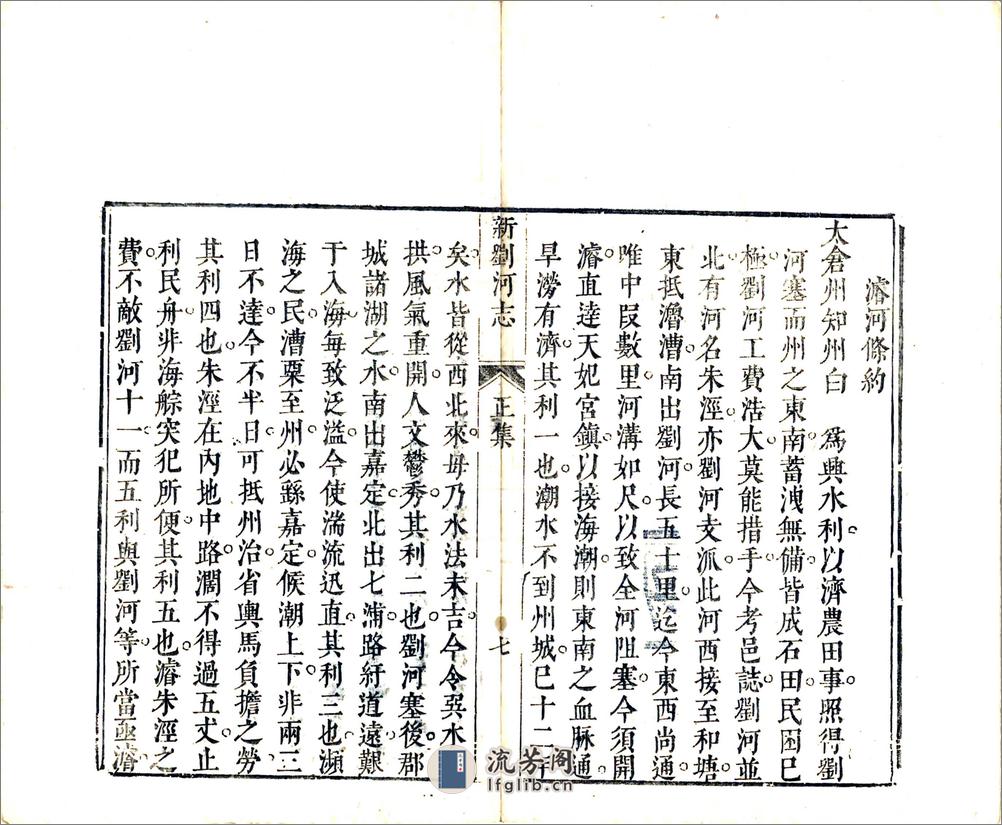 濬河條約
太倉州知州白　為興水利以濟農田事照得劉
河塞而州之東南蓄洩無備皆成石田民困已
極劉河工費浩大莫能措手今考邑誌劉河並
北有河名朱涇亦劉河支派此河西接至和塘
東抵漕漕南出劉河長五十里迄今東西尚通
唯中段數里河溝如尺以致全河阻塞今須開
濬直達天妃宮鎮以接海潮則東南之血脉通
旱澇有濟其利一也潮水不到州城已十二年
新劉河志
正集
七
矣水皆從西北來毋乃水法未吉今令巽水
拱風氣重開人文鬱秀其利二也劉河塞後郡
城諸湖之水南出嘉定北出七浦路紆道遠艱
于入海每致泛溢今使湍流迅直其利三也瀕
海之民漕粟至州必繇嘉定候潮上下非兩三
日不達今不半日可抵州治省輿馬負擔之勞
其利四也朱涇在內地中路濶不得過五丈止
利民舟非海艅突犯所便其利五也濬朱涇之
費不敵劉河十一而五利與劉河等所當亟濬
流芳阁
lfglib.cn